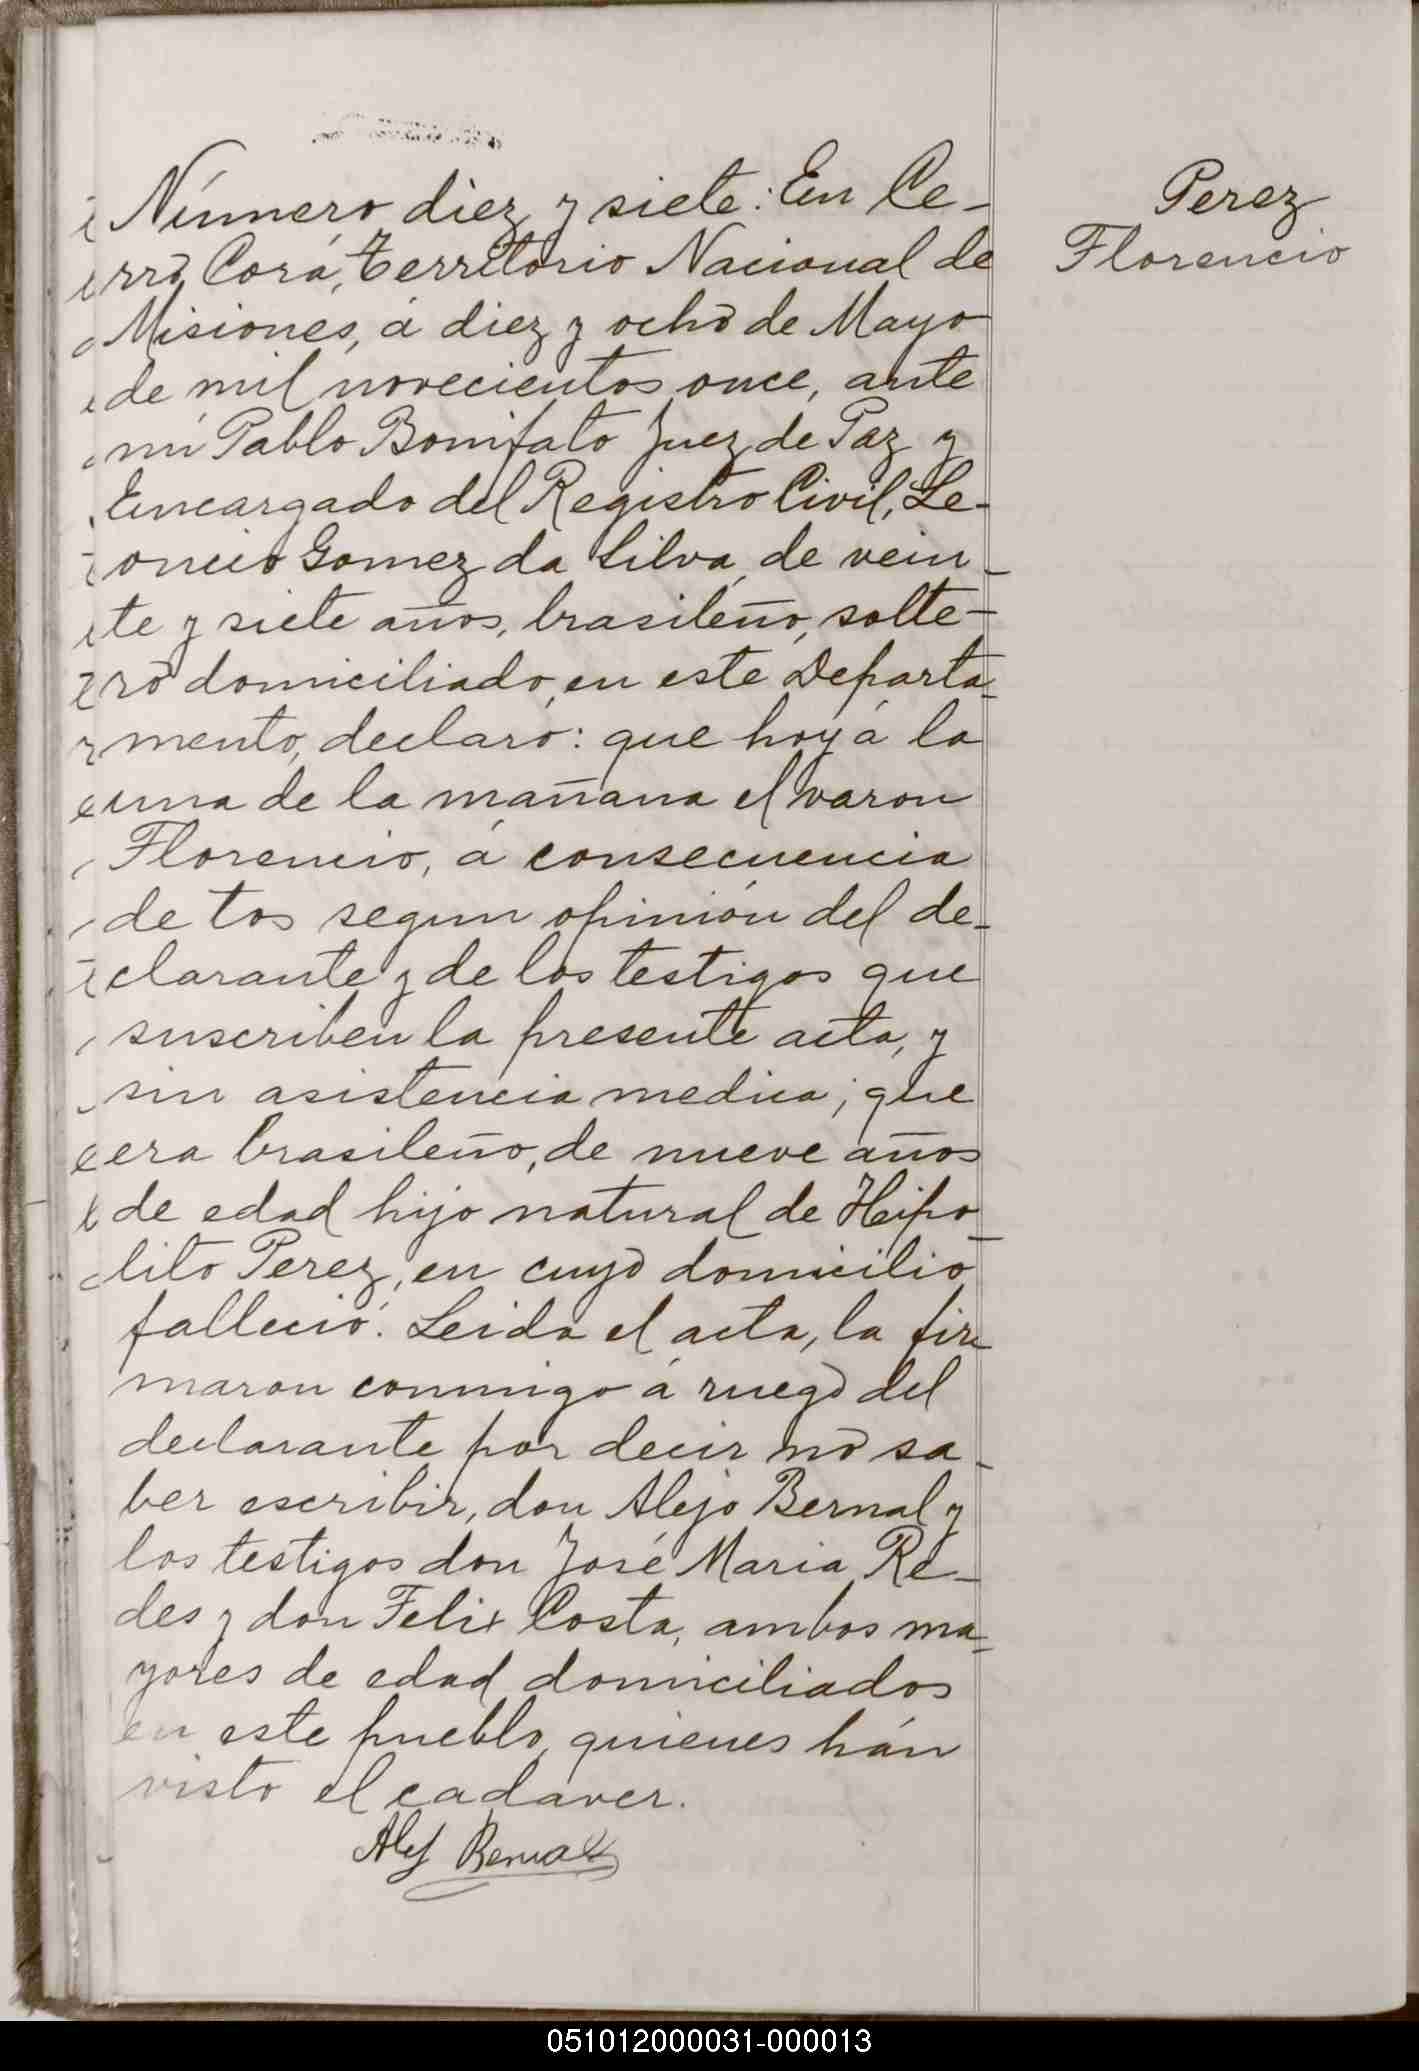 Número diez y siete: En Ce-
rro Corá, Territorio Nacional de
Misiones, á diez y ocho de Mayo
de mil novecientos once, ante
mi Pablo Bonifato Juez de Paz y
Encargado del Registro Civil, Le-
oncio Gomez da Silva, de vein-
te y siete años, brasileño, solte-
ro domiciliado, en este Departa-
mento, declaró: que hoy á la
una de la mañana el varon
Florencio, á consecuencia
de tos segun opinión del de-
clarante y de los testigos que
suscriben la presente acta, y
sin asistencia medica; que
era brasileño, de nueve años
de edad hijo natural de Heipo-
lito Perez, en cuyo domicilio
falleció. Leida el acta, la fir
maron conmigo á ruego del
declarante por decir no sa-
ber escribir, don Alejo Bernal y
los testigos don José Maria Re-
des y don Felix Costa, ambos ma-
yores de edad domiciliados
en este pueblo, quienes hán
visto el cadaver.
Alej Bernal
Perez
Florencio
051012000031-000013